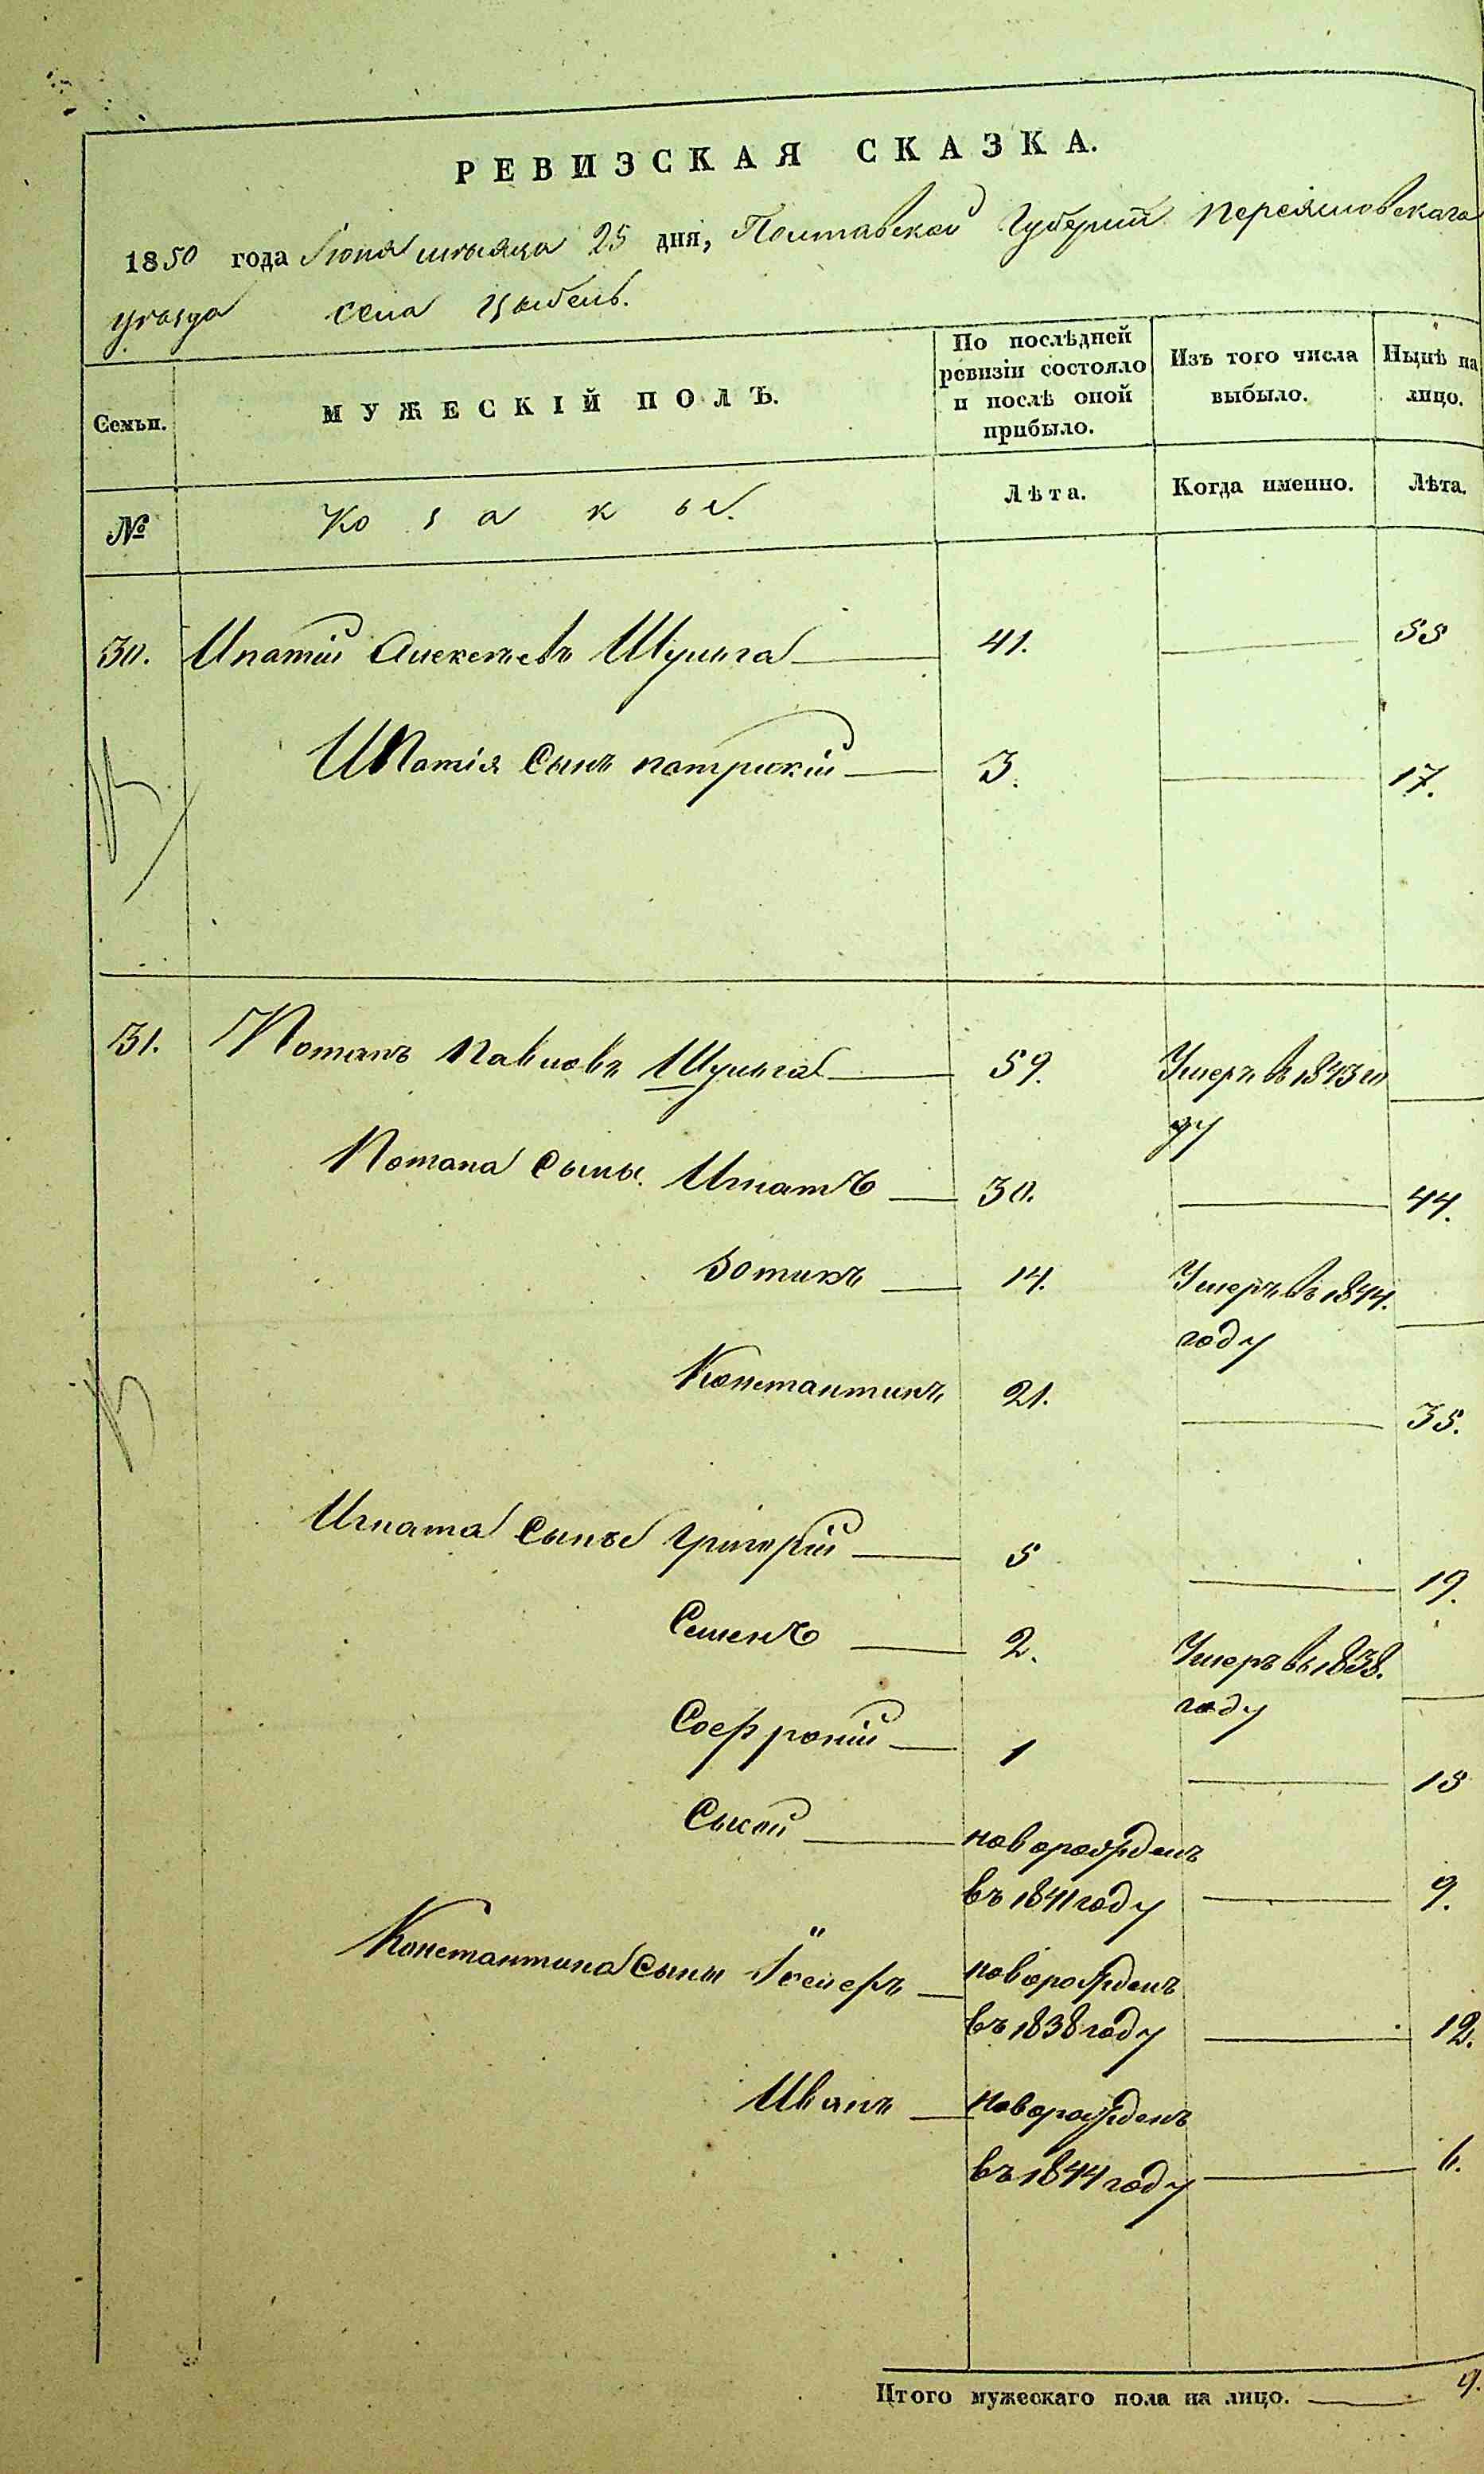 РЕВИЗСКАЯ СКАЗКА.
1850 года Іюня мѣсяца 25 дня, Полтавской Губерніи Переясловскаго
уѣзда села Цыбель.
Семьи.
МУЖЕСКІЙ ПОЛЪ.
По послѣдней ревизіи состояло и послѣ оной прибыло.
Изъ того числа выбыло.
Нынѣ на лицо.
№
Козакы.
Лѣта.
Когда именно.
Лѣта.
30. Ипатій Алексѣевъ Шульга 41. 55
Ипатія Сынъ патрикій 3. 17.
31. Потапъ Павловъ Шульга 59. Умеръ въ 1843 го
ду
Потапа Сыны Игнатъ 30. 44.
Зотикъ 14. Умеръ въ 1844.
году
Константинъ 21. 35.
Игната Сыны Григорій 5 19.
Семенъ 2. Умеръ въ 1838.
году
Софроній 1 15
новорожденъ
въ 1841 году 9.
Константина Сыны новорожденъ
въ 1838 году 12.
Иванъ новорожденъ
въ 1844 году 6.
Итого мужескаго пола на лицо. 9.